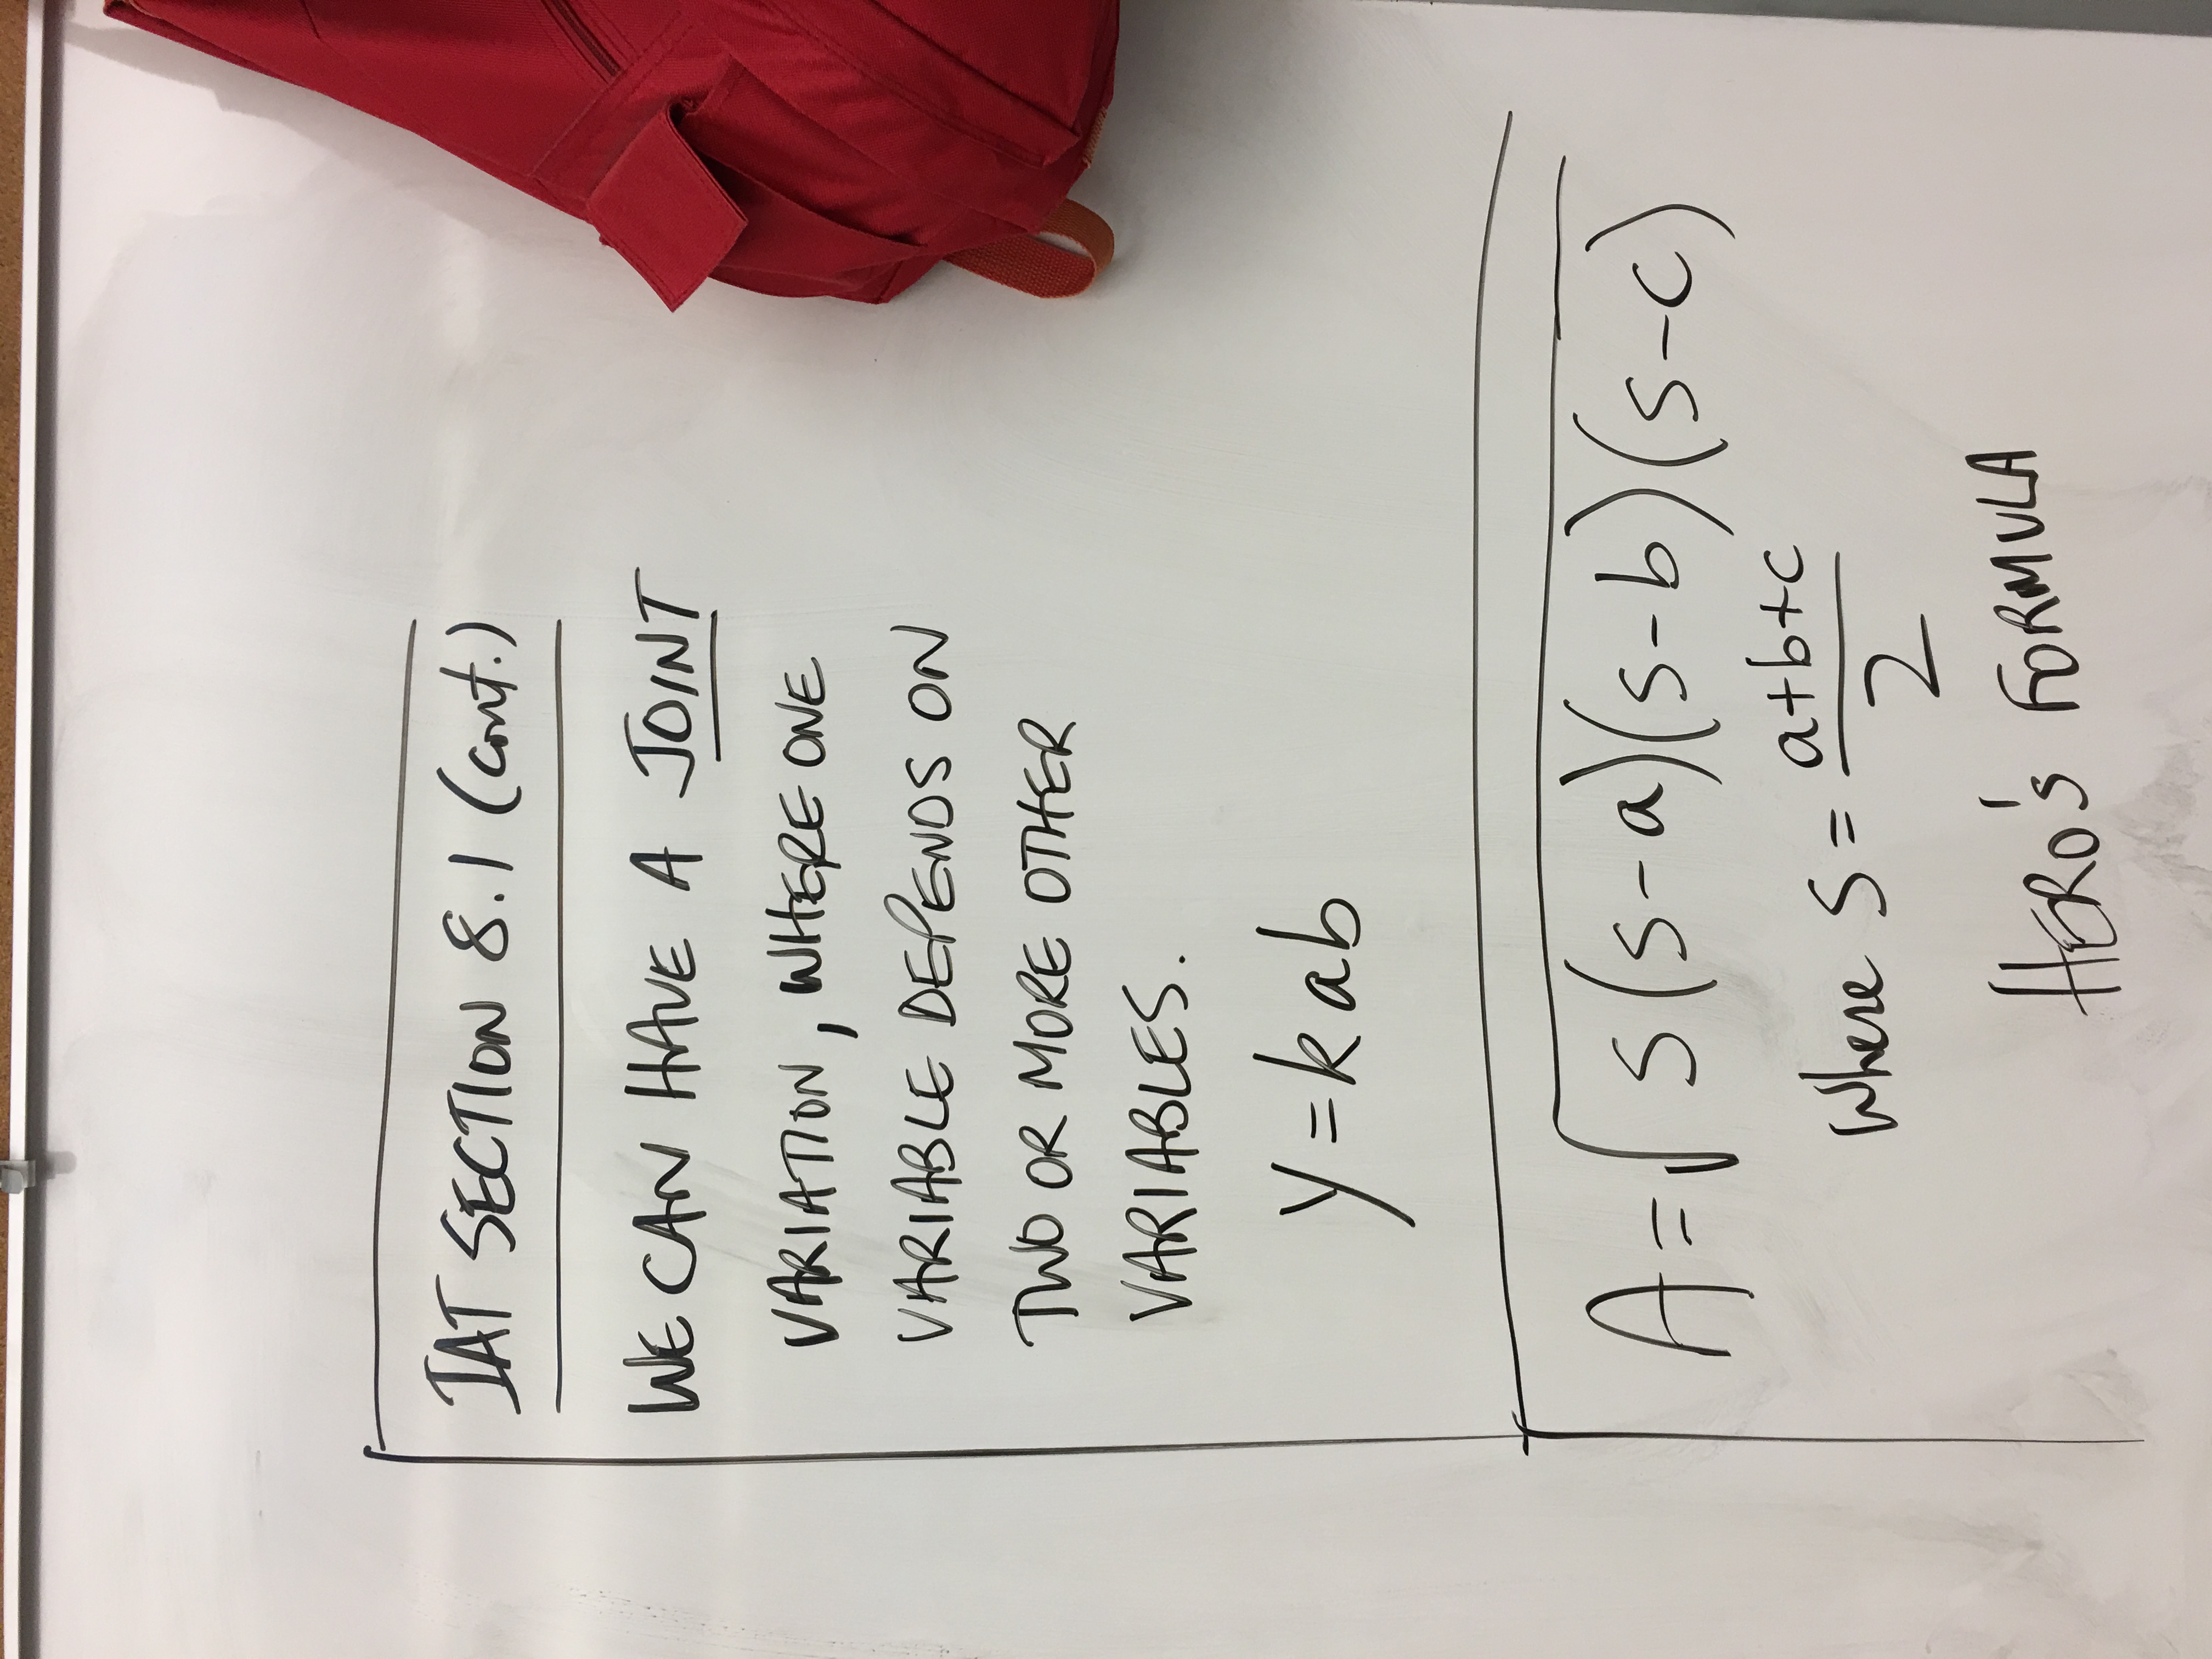 IAT SECTION 8.1 (cont.)
WE CAN HAVE A JOINT
VARIATION, WHERE ONE
VARIABLE DEPENDS ON
TWO OR MORE OTHER
VARIABLES.
y = kab
A = √s(s-a)(s-b)(s-c)
where s = a+b+c
2
HERO'S FORMULA